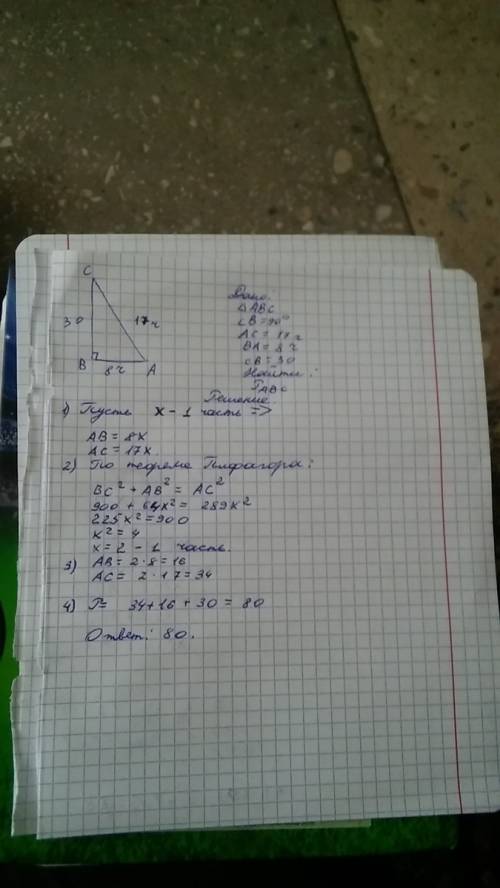 C
30
17ч
B
8ч
A
Дано:
△ABC
∠B=90°
AC=17ч
BA=8ч
CB=30
Найти:
PABC
Решение
1) Пусть x - 1 часть =>
AB=8x
AC=17x
2) По теореме Пифагора:
BC²+AB²=AC²
900+64x²=289x²
225x²=900
x²=4
x=2 - 1 часть.
3) AB=2·8=16
AC=2·17=34
4) P= 34+16+30=80
Ответ: 80.